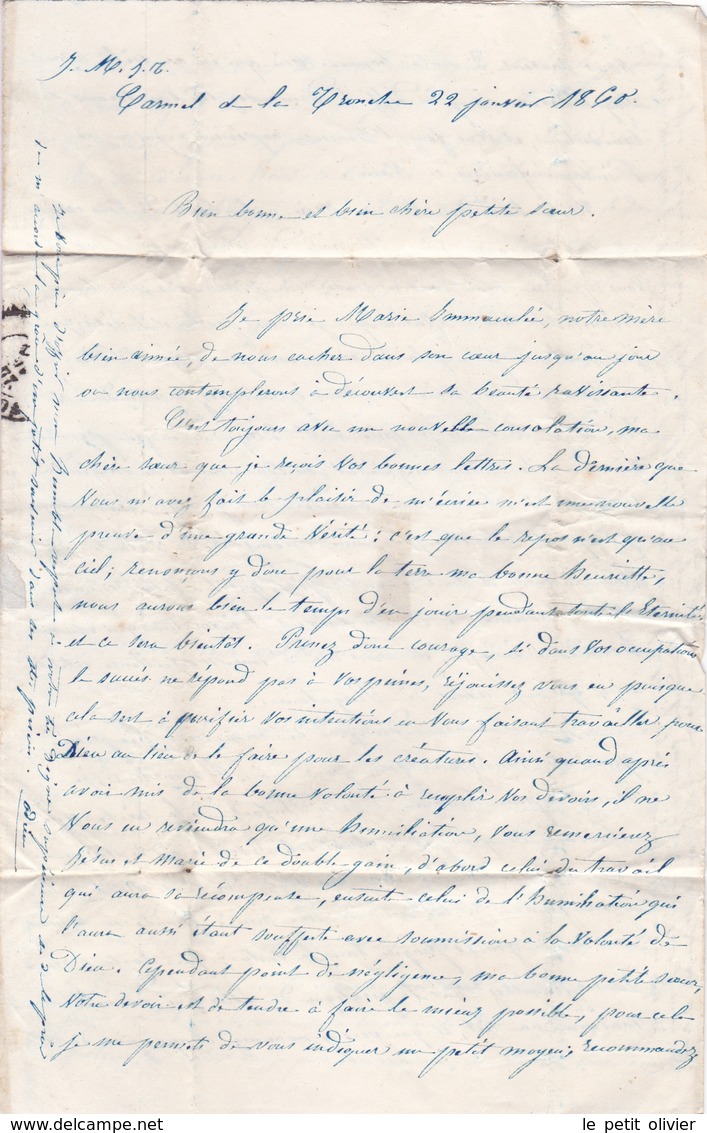 J. M. J. T.
Carmel de la Tronche 22 janvier 1860.
Bien bonne et bien chère petite sœur.
Je prie Marie Immaculée, notre mère
bien aimée, de nous cacher dans son cœur jusqu'au jour
ou nous contemplerons à découvert sa beauté ravissante.
C'est toujours avec une nouvelle consolation, ma
chère sœur que je reçois vos bonnes lettres. La dernière que
vous m'avez fait le plaisir de m'écrire m'est une nouvelle
preuve d'une grande vérité : c'est que le repos n'est qu'au
ciel ; renonçons y donc pour la terre ma bonne henriette,
nous aurons bien le temps d'en jouir pendant toute l'Eternité,
et ce sera bientôt. Prenez donc courage, si dans vos occupations
le succès ne répond pas à vos peines, réjouissez vous en puisque
cela sert à purifier vos intentions en vous faisant travailler pour
Dieu au lieu de le faire pour les créatures. Ainsi quand après
avoir mis de la bonne volonté à remplir vos devoirs, il ne
vous en reviendra qu'une humiliation, vous remercierez
Jésus et Marie de ce double gain, d'abord celui du travail
qui aura sa récompense, ensuite celui de l'humiliation qui
l'aura aussi étant soufferte avec soumission à la volonté de
Dieu. Cependant point de négligence, ma bonne petite sœur,
votre devoir est de tendre à faire le mieux possible, pour cela
je me permets de vous indiquer un petit moyen ; recommandez
Je vous prie d'offrir mon humble respect à votre digne supérieure
de m'accorder un petit souvenir dans ses prières. Adieu
le petit olivier